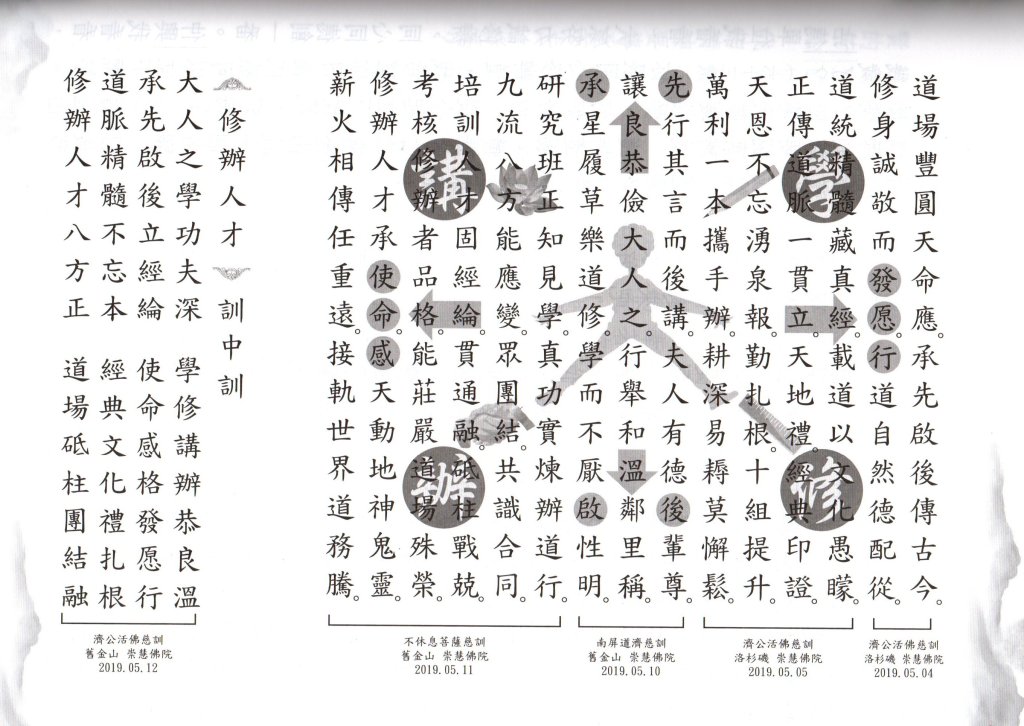 道場豐圓天命應。承先啟後傳古今。
修身誠敬而發愿行道自然德配從。
道統精髓藏真經。載道以文化愚矇
正傳道脈一貫立。天地禮。經典印證。
天恩不忘湧泉報。勤扎根。十組提升。
萬利一本攜手辦。耕深易耨莫懈鬆。
先行其言而後講。夫人有德後輩尊。
讓良恭儉大人之。行舉和溫鄰里稱。
承星履草樂道修。學而不厭啟性明。
研究班正知見學。真功實煉辦道行。
九流八方能應變。眾團結。共識合同。
培訓人才固經綸。貫通融。砥柱戰兢。
考核修辦者品格。能莊嚴道場殊榮。
修辦人才承使命。感天動地神鬼靈。
薪火相傳任重遠。接軌世界道務騰。
學
修
講
辦
濟公活佛慈訓
洛杉磯 崇慧佛院
2019.05.04
濟公活佛慈訓
洛杉磯 崇慧佛院
2019.05.05
南屏道濟慈訓
舊金山 崇慧佛院
2019.05.10
不休息菩薩慈訓
舊金山 崇慧佛院
2019.05.11
修辦人才 訓中訓
大人之學功夫深 學修講辦恭良溫
承先啟後立經綸 使命感格發愿行
道脈精髓不忘本 經典文化禮扎根
修辦人才八方正 道場砥柱團結融
濟公活佛慈訓
舊金山 崇慧佛院
2019.05.12